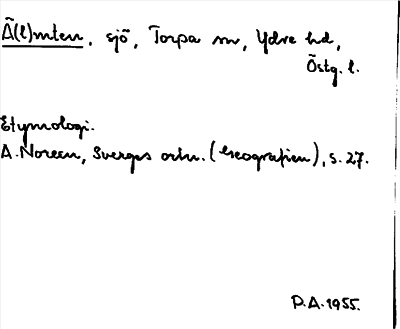 Ä(l)mten, sjö, Torpa sn, Ydre hd,
Östg. l.
Etymologi.
A. Noreen, Sveriges ortn. (Geografien), s. 27.
P.A. 1955.